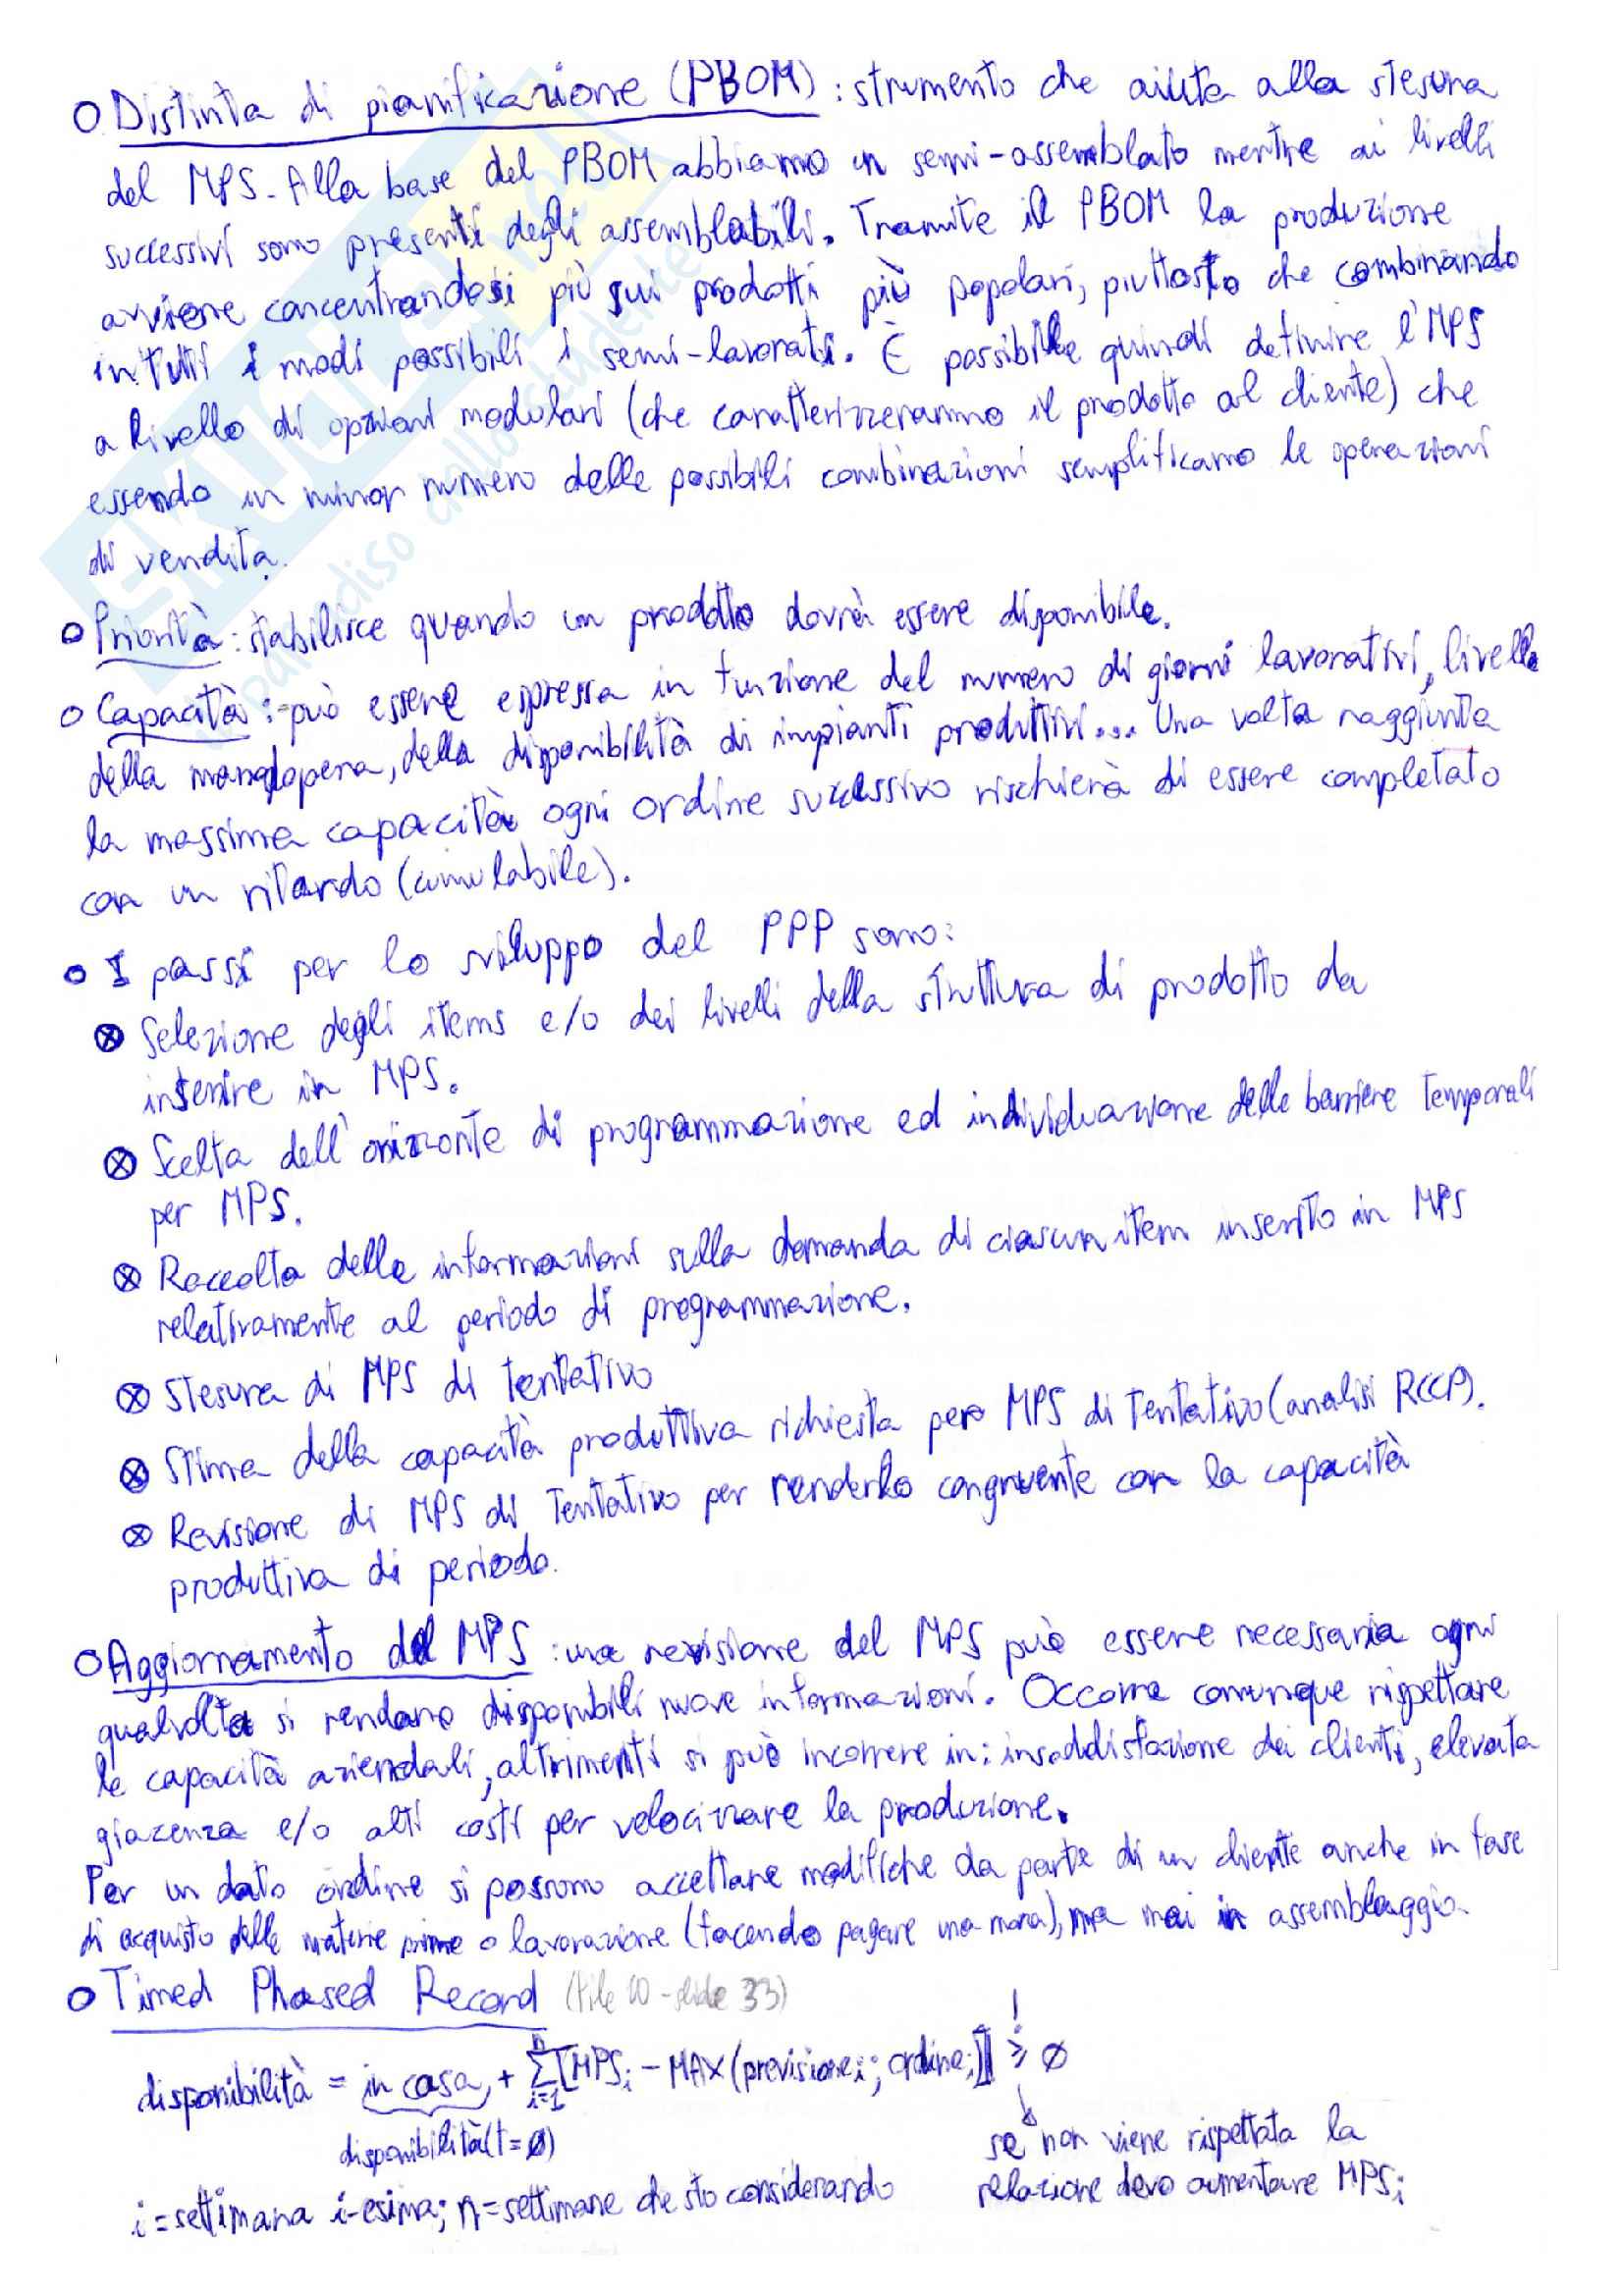 ○ Distinta di pianificazione (PBOM): strumento che aiuta alla stesura
del MPS. Alla base del PBOM abbiamo un semi-assemblato mentre ai livelli
successivi sono presenti degli assemblabili. Tramite il PBOM la produzione
avviene concentrandosi più sui prodotti più popolari, piuttosto che combinando
in tutti i modi possibili i semi-lavorati. È possibile quindi definire l'MPS
a livello di opzioni modulari (che caratterizzeranno il prodotto al cliente) che
essendo in minor numero delle possibili combinazioni semplificano le operazioni
di vendita.
○ Priorità: stabilisce quando un prodotto dovrà essere disponibile.
○ Capacità: può essere espressa in funzione del numero di giorni lavorativi, livello
della manodopera, della disponibilità di impianti produttivi... Una volta raggiunta
la massima capacità ogni ordine successivo rischierà di essere completato
con un ritardo (cumulabile).
○ I passi per lo sviluppo del PPP sono:
⊗ Selezione degli items e/o dei livelli della struttura di prodotto da
inserire in MPS.
⊗ Scelta dell'orizzonte di programmazione ed individuazione delle barriere temporali
per MPS.
⊗ Raccolta delle informazioni sulla domanda di ciascun item inserito in MPS
relativamente al periodo di programmazione.
⊗ Stesura di MPS di tentativo
⊗ Stima della capacità produttiva richiesta per MPS di tentativo (analisi RCCP).
⊗ Revisione di MPS di tentativo per renderlo congruente con la capacità
produttiva di periodo.
○ Aggiornamento del MPS: una revisione del MPS può essere necessaria ogni
qualvolta si rendano disponibili nuove informazioni. Occorre comunque rispettare
le capacità aziendali, altrimenti si può incorrere in: insoddisfazione dei clienti, elevata
giacenza e/o alti costi per velocizzare la produzione.
Per un dato ordine si possono accettare modifiche da parte di un cliente anche in fase
di acquisto delle materie prime o lavorazione (facendo pagare una mora), ma mai in assemblaggio.
○ Timed Phased Record (file 10 - slide 33)
disponibilità = in casa + Σ[MPSi - MAX(previsione i; ordine i)] ≥ Ø
n
i=1
!
disponibilità(t=Ø)
se non viene rispettata la
relazione devo aumentare MPSi
i = settimana i-esima; n = settimane che sto considerando
SKUOLA.net
il paradiso dello studente